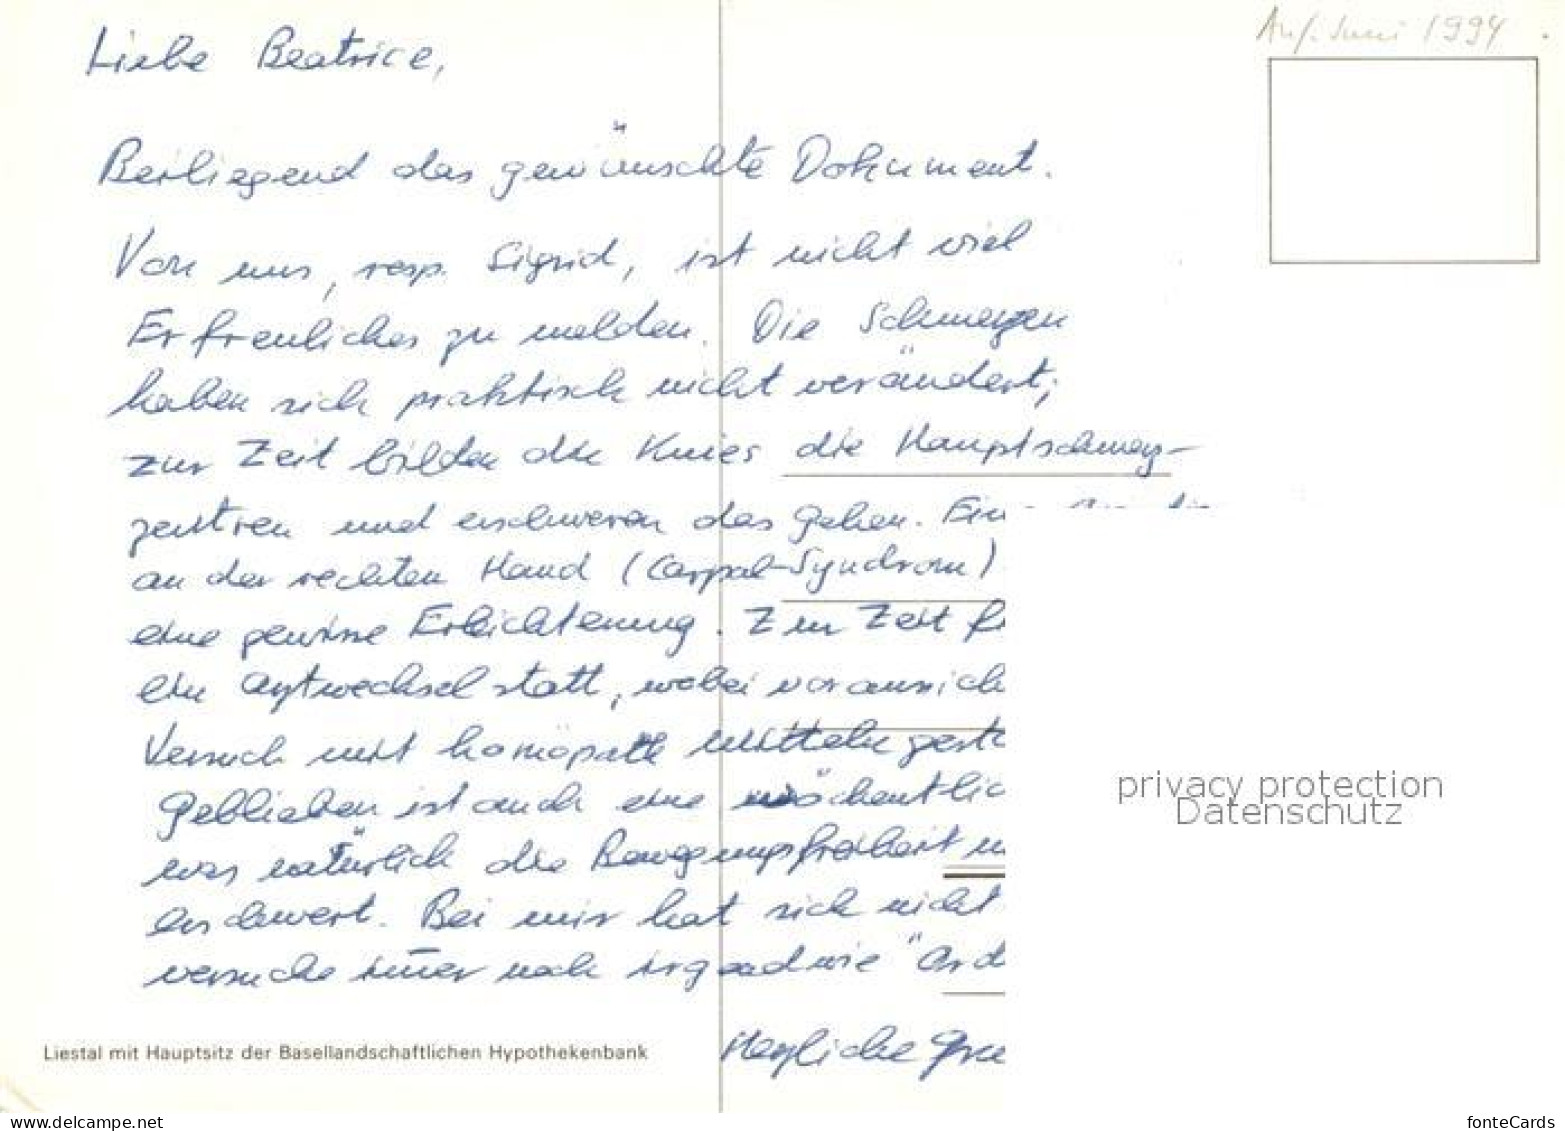 Anf. Juni 1994
Liebe Beatrice,
Beiliegend das gewünschte Dokument.
Von uns, resp. Sigrid, ist nicht viel
Erfreuliches zu melden. Die Schmerzen
haben sich praktisch nicht verändert;
zur Zeit bilden die Knies die Hauptschmerz-
zentren und erschweren das Gehen. Ein
an der rechten Hand (Carpal-Syndrom)
eine gewisse Erleichterung. Zur Zeit f
ein Arztwechsel statt, wobei voraussich
Versuch mit homöopath Mitteln gest
Geblieben ist auch eine wöchentlic
was natürlich die Bewegungsfreiheit
erschwert. Bei mir hat sich nicht
versuche immer noch irgendwie "
Herzliche Grü
Liestal mit Hauptsitz der Basellandschaftlichen Hypothekenbank
privacy protection
Datenschutz
www.delcampe.net
fonteCards